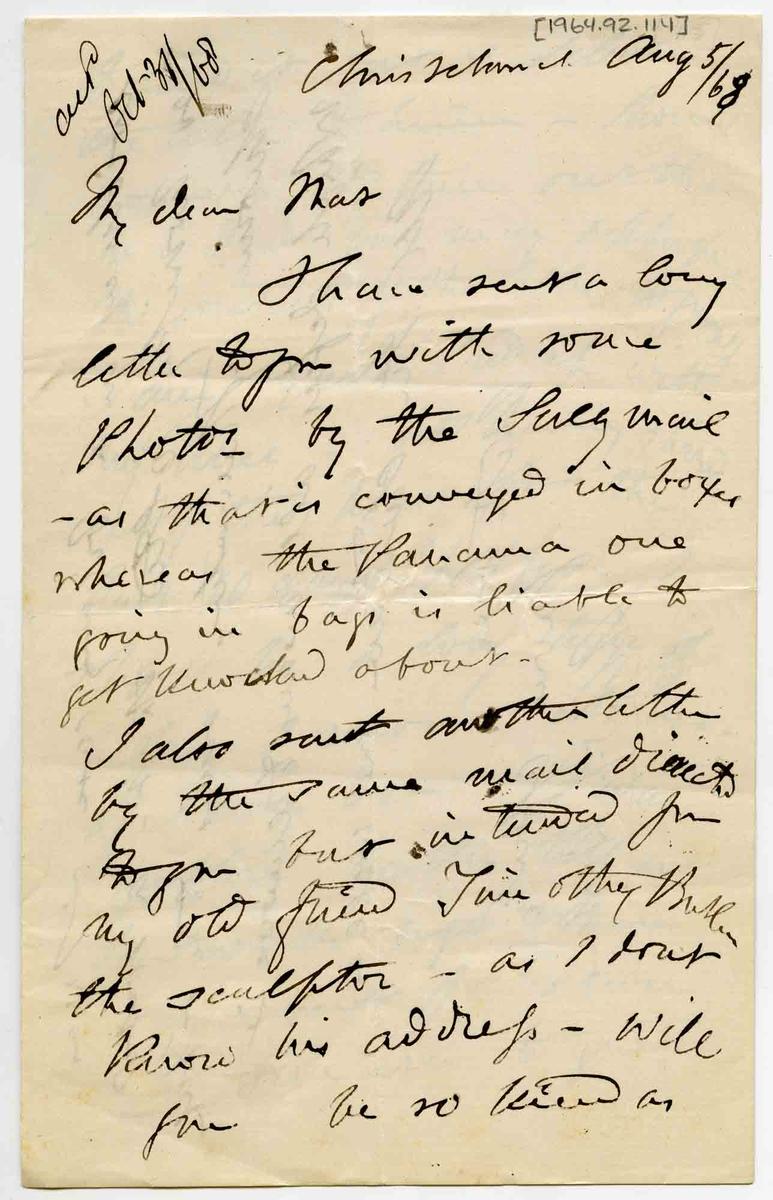 [1964.92.114]
ansd
Oct 31/68
Christchurch Aug 5/68
My dear Mat
I have sent a long
letter to you with some
Photos by the Suez mail
- as that is conveyed in boxes
whereas the Panama one
going in bags is liable to
get knocked about -
I also sent another letter
by the same mail directed
to you but intended for
my old friend Timothy Butler
the sculptor - as I dont
Know his address - Will
you be so kind as